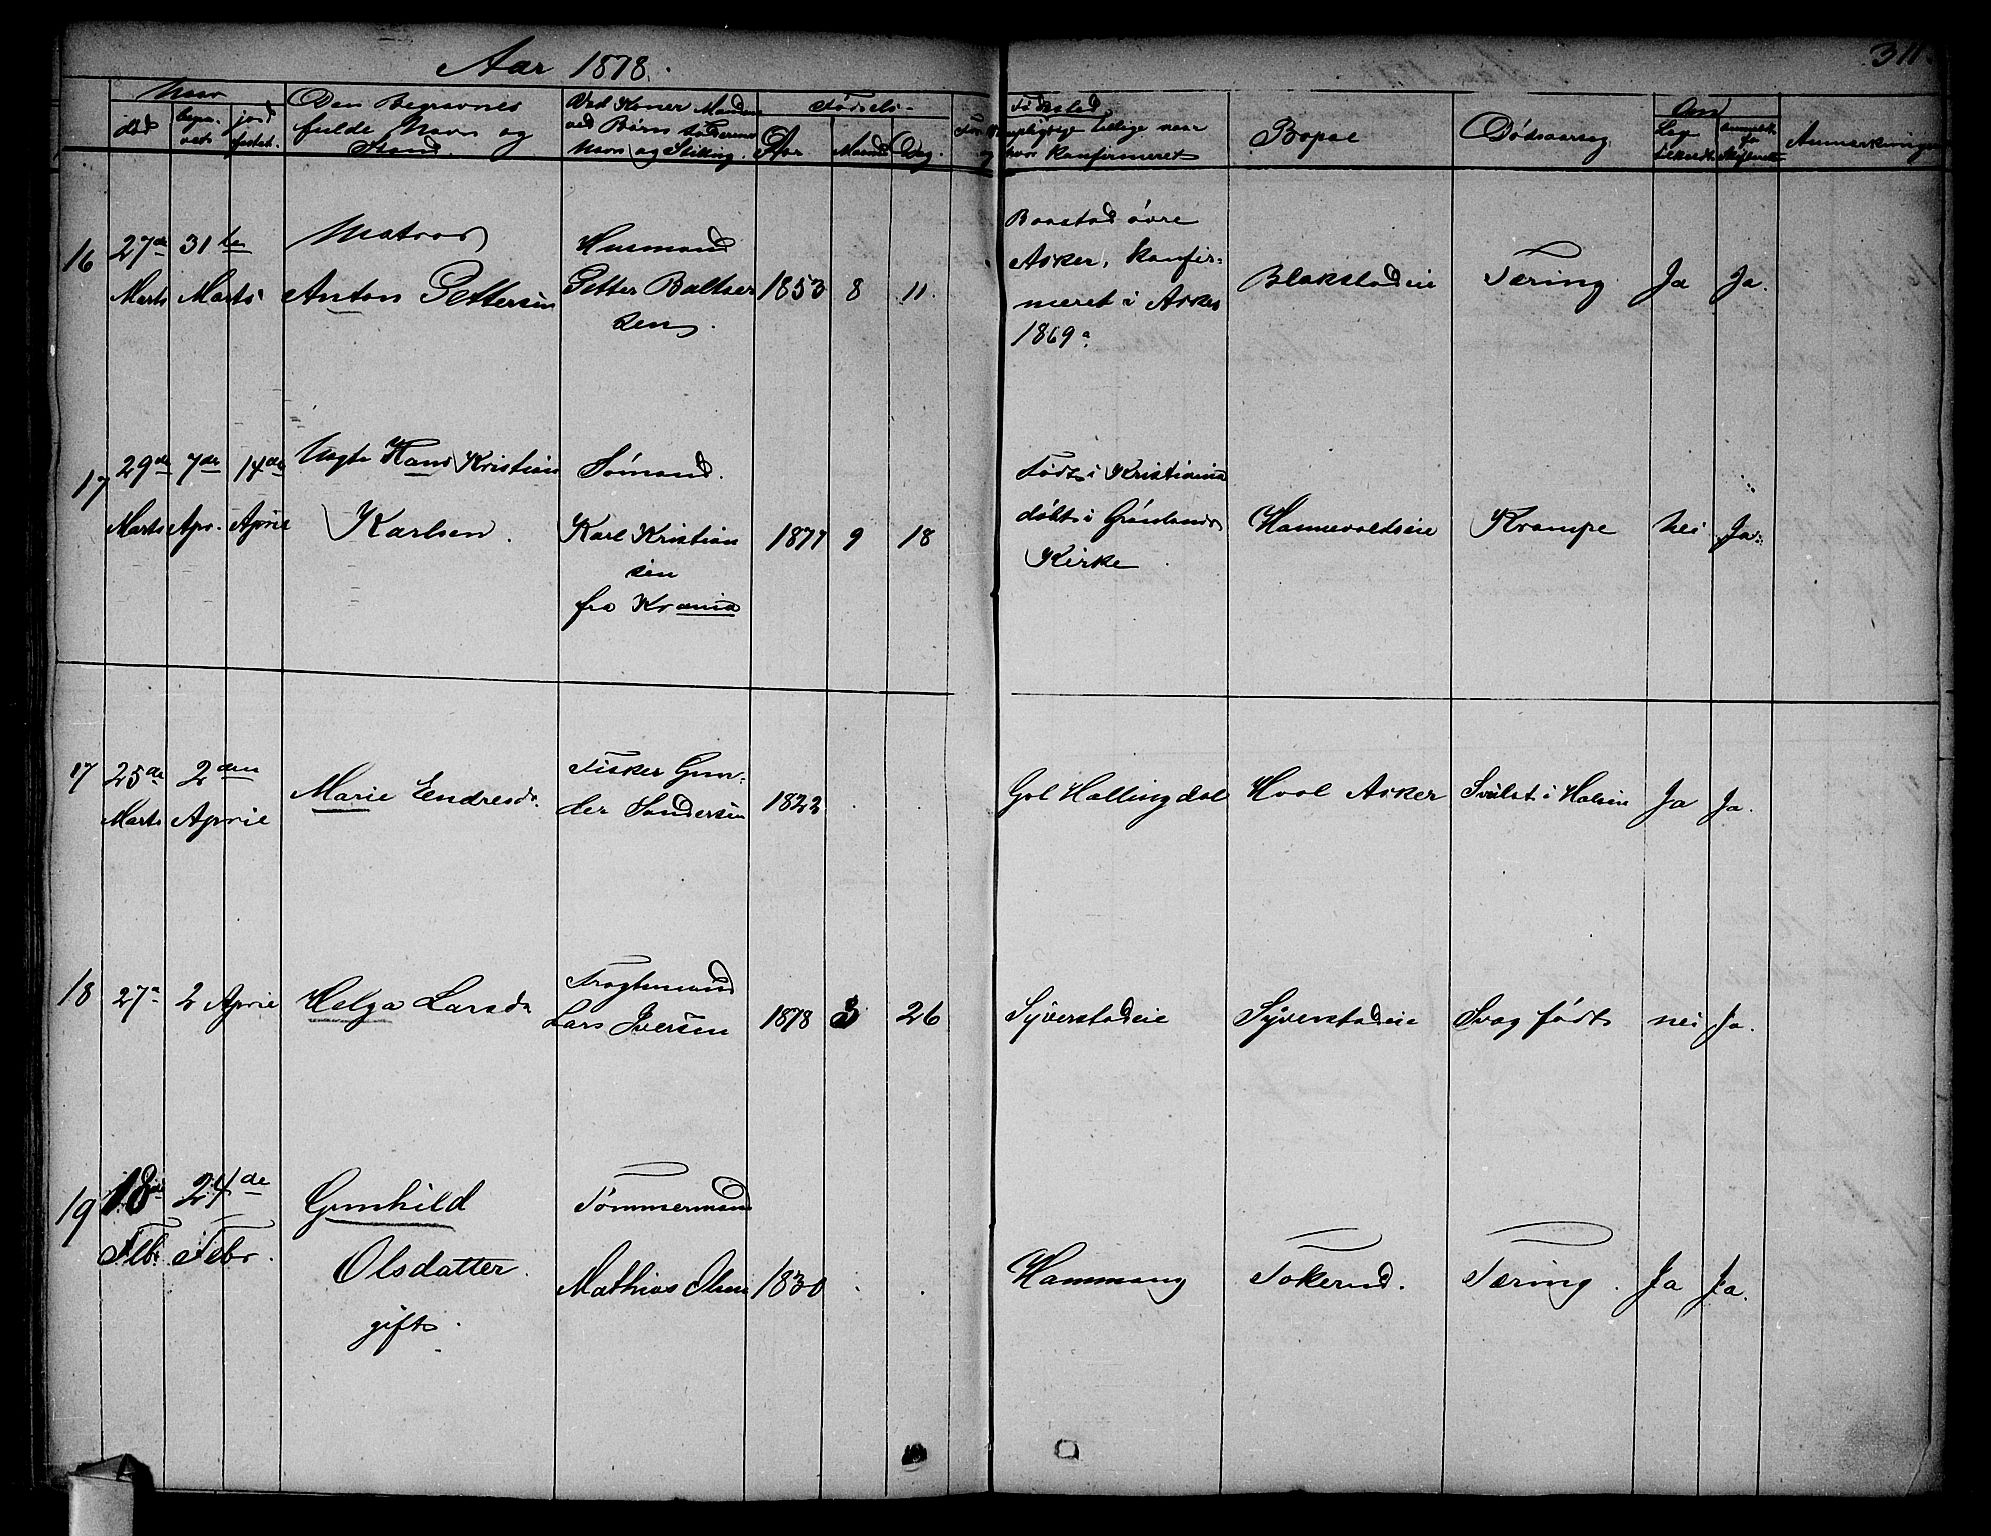 Aar 1878.
311.
Naar
død
begra-
vet
jord
fæstet.
Den Begravnes
fulde Navn og
Stand.
Ved Koner Mandens
ved Børn Faderens
Navn og Stilling.
Fødsels-
Aar
Maaned
Dag.
Fødested
tillige naar
hvor konfirmeret
Bopæl
Dødsaarsag
Om
Læge
tilkaldt
anmeldt
Skifteret
Anmærkninger
16
27de
Marts
31te
Marts
Matros
Anton Pettersen
Husmand
Petter Baltser
sen.
1853
8
11.
Baastad övre
Asker, konfir-
meret i Asker
1869
Blakstadeie
Tæring
Ja
Ja.
17
29de
Marts
7de
Apr.
14de
April
Ungte Hans Kristian
Karlsen.
Sømand.
Karl Kristian
sen
fra Krania
1877
9
18
Født i Kristiania
døbt i Grönlands
Kirke
Hannevoldseie
Krampe
Nei
Ja.
17
25de
Marts
2den
April
Marie Endresd.
Fisker Gun-
der Sandersen
1822
Gol Hallingdal
Hval Asker
Svulst i Halsen
Ja
Ja.
18
27
2 April
Helga Larsd
Fragtemand
Lars Iversen
1878
3
26
Syverstadeie
Syverstadeie
Svag født
nei
Ja.
19
18de
Feb.
24de
Febr.
Gunhild
Olsdatter.
gift.
Tømmermand
Mathias Olsen
1830
Hammang
Tokerud.
Tæring.
Ja
Ja.